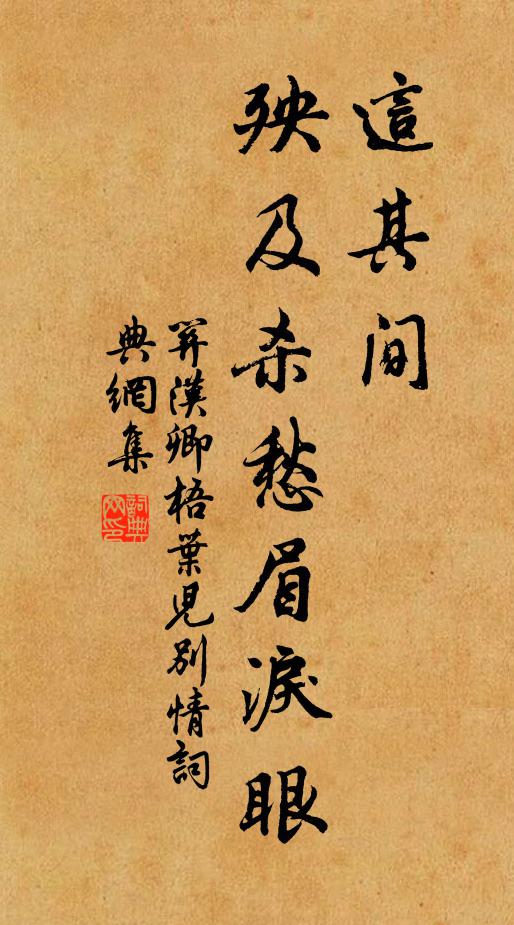 這其間
殃及杀愁眉淚眼
关漢卿梧葉児別情詞
典網集
詞典
网印